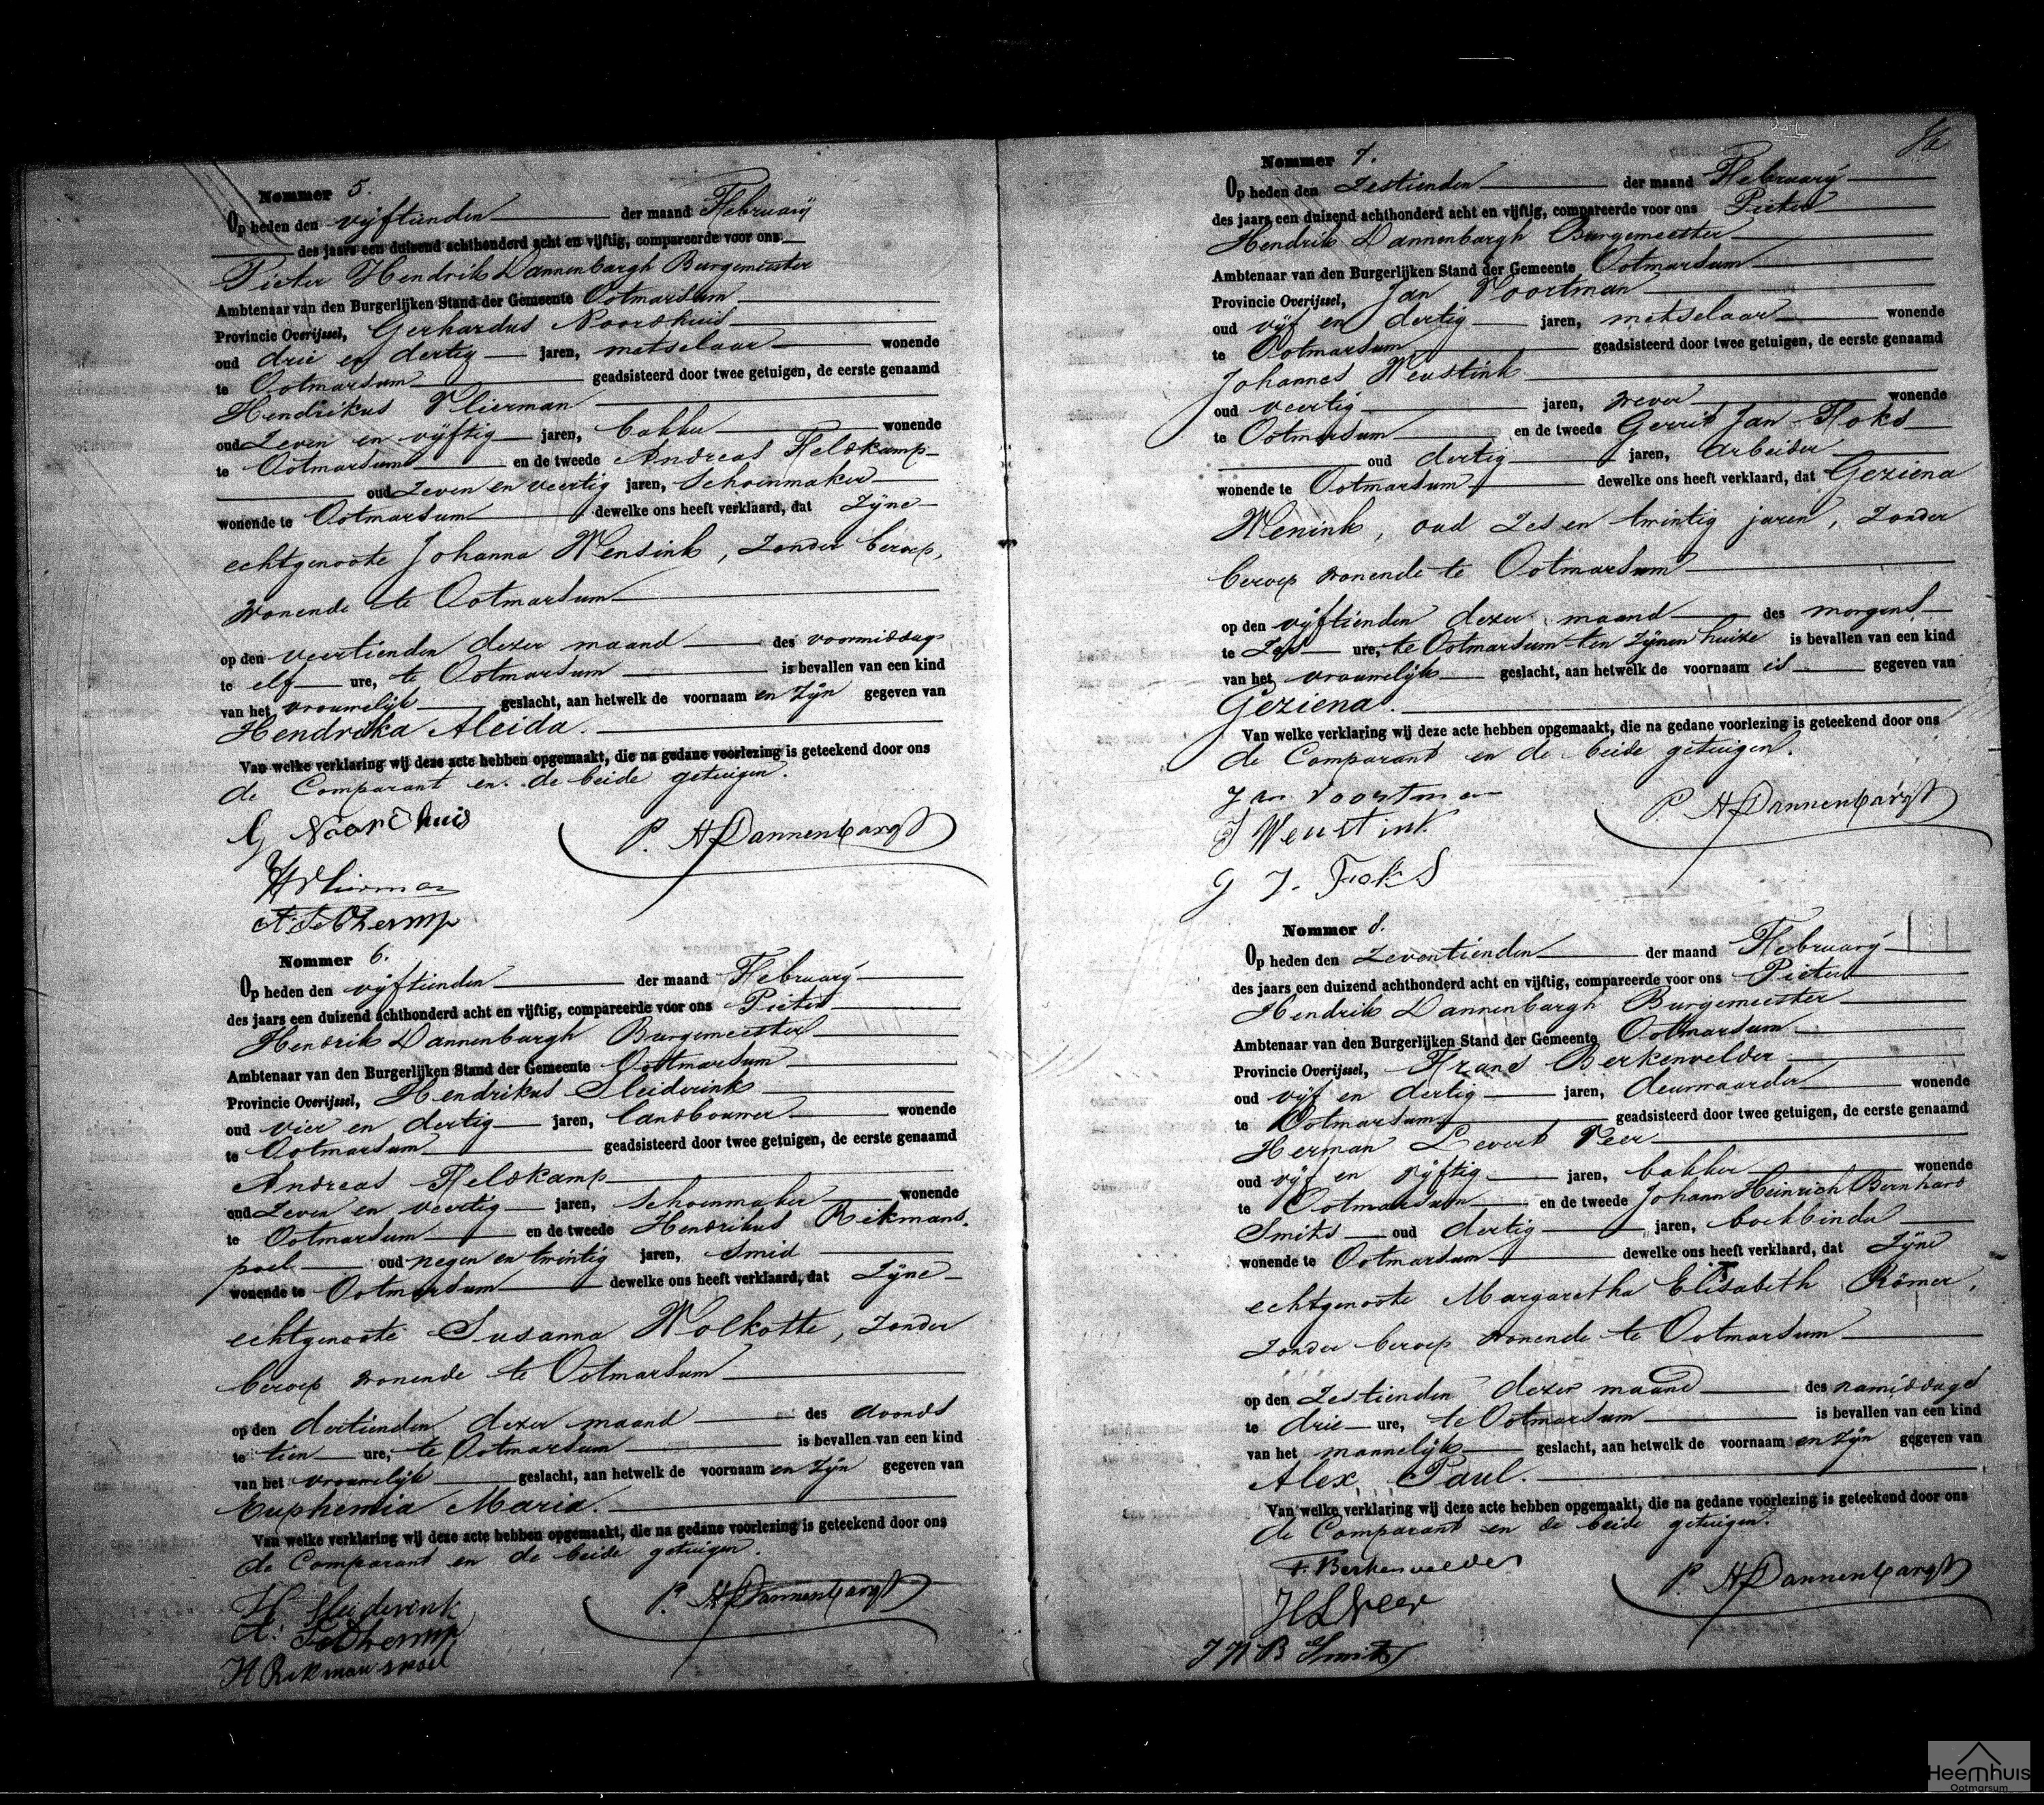 Nommer 5.
Op heden den vijftienden der maand Februarij
des jaars een duizend achthonderd acht en vijftig, compareerde voor ons
Pieter Hendrik Dannenbargh Burgemeester
Ambtenaar van den Burgerlijken Stand der Gemeente Ootmarsum
Provincie Overijssel, Gerhardus Noordhuis
oud drie en dertig jaren, metselaar wonende
te Ootmarsum geadsisteerd door twee getuigen, de eerste genaamd
Hendrikus Vlierman
oud Zeven en vijftig jaren, bakker wonende
te Ootmarsum en de tweede Andreas Feldkamp
oud Zeven en veertig jaren, Schoenmaker
wonende te Ootmarsum dewelke ons heeft verklaard, dat Zijne
echtgenoote Johanna Wensink, Zonder beroep,
wonende te Ootmarsum
op den veertienden dezer maand des voormiddags
te elf ure, te Ootmarsum is bevallen van een kind
van het vrouwelijk geslacht, aan hetwelk de voornaam en zijn gegeven van
Hendrika Aleida.
Van welke verklaring wij deze acte hebben opgemaakt, die na gedane voorlezing is geteekend door ons
de Comparant en de beide getuigen.
G Noordhuis
P. H Dannenbargh
H Vlierman
A. Feldkamp
Nommer 6.
Op heden den vijftienden der maand Februarij
des jaars een duizend achthonderd acht en vijftig, compareerde voor ons Pieter
Hendrik Dannenbargh Burgemeester
Ambtenaar van den Burgerlijken Stand der Gemeente Ootmarsum
Provincie Overijssel, Hendrikus Sleiderink
oud vier en dertig jaren, landbouwer wonende
te Ootmarsum geadsisteerd door twee getuigen, de eerste genaamd
Andreas Feldkamp
oud Zeven en veertig jaren, Schoenmaker wonende
te Ootmarsum en de tweede Hendrikus Rekmans
poel oud negen en twintig jaren, Smid
wonende te Ootmarsum dewelke ons heeft verklaard, dat Zijne
echtgenoote Susanna Wolkotte, Zonder
beroep wonende te Ootmarsum
op den dertienden dezer maand des avonds
te tien ure, te Ootmarsum is bevallen van een kind
van het vrouwelijk geslacht, aan hetwelk de voornaam en zijn gegeven van
Euphemia Maria.
Van welke verklaring wij deze acte hebben opgemaakt, die na gedane voorlezing is geteekend door ons
de Comparant en de beide getuigen.
H. Sleiderink
P. H Dannenbargh
A: Feldkamp
H Rekmanspoel
Nommer 7.
Op heden den Zestienden der maand Februarij
des jaars een duizend achthonderd acht en vijftig, compareerde voor ons Pieter
Hendrik Dannenbargh Burgemeester
Ambtenaar van den Burgerlijken Stand der Gemeente Ootmarsum
Provincie Overijssel, Jan Voortman
oud vijf en dertig jaren, metselaar wonende
te Ootmarsum geadsisteerd door twee getuigen, de eerste genaamd
Johannes Weustink
oud veertig jaren, wever wonende
te Ootmarsum en de tweede Gerrit Jan Foks
oud dertig jaren, Arbeider
wonende te Ootmarsum dewelke ons heeft verklaard, dat Geziena
Wenink, oud Zes en twintig jaren, Zonder
beroep wonende te Ootmarsum
op den vijftienden dezer maand des morgens
te Zes ure, te Ootmarsum ten zijnen huize is bevallen van een kind
van het vrouwelijk geslacht, aan hetwelk de voornaam is gegeven van
Geziena.
Van welke verklaring wij deze acte hebben opgemaakt, die na gedane voorlezing is geteekend door ons
de Comparant en de beide getuigen.
Jan Voortman
P. H Dannenbargh
J Weustink
G J. Foks
Nommer 8.
Op heden den Zeventienden der maand Februarij
des jaars een duizend achthonderd acht en vijftig, compareerde voor ons Pieter
Hendrik Dannenbargh Burgemeester
Ambtenaar van den Burgerlijken Stand der Gemeente Ootmarsum
Provincie Overijssel, Frans Berkenvelder
oud vijf en dertig jaren, deurwaarder wonende
te Ootmarsum geadsisteerd door twee getuigen, de eerste genaamd
Herman Levert Veer
oud vijf en vijftig jaren, bakker wonende
te Ootmarsum en de tweede Johann Heinrich Bernhard
Smits oud dertig jaren, boekbinder
wonende te Ootmarsum dewelke ons heeft verklaard, dat Zijne
echtgenoote Margaretha Elisabeth Römer,
Zonder beroep wonende te Ootmarsum
op den Zestienden dezer maand des namiddags
te drie ure, te Ootmarsum is bevallen van een kind
van het mannelijk geslacht, aan hetwelk de voornaam en zijn gegeven van
Alex Paul.
Van welke verklaring wij deze acte hebben opgemaakt, die na gedane voorlezing is geteekend door ons
de Comparant en de beide getuigen.
F. Berkenvelder
P. H Dannenbargh
H L Veer
J H B Smits
Heemhuis
Ootmarsum